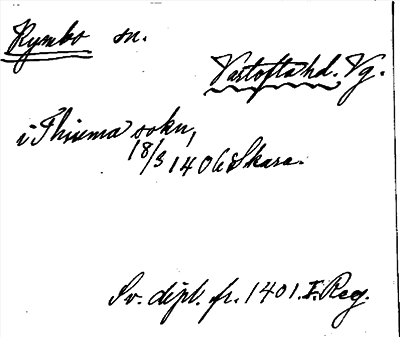 Rymbo sn.
Vartofta hd. Vg.
i Thiæma sokn,
18/3 1406 Skara.
Sv. dipl. fr. 1401. I. Reg.